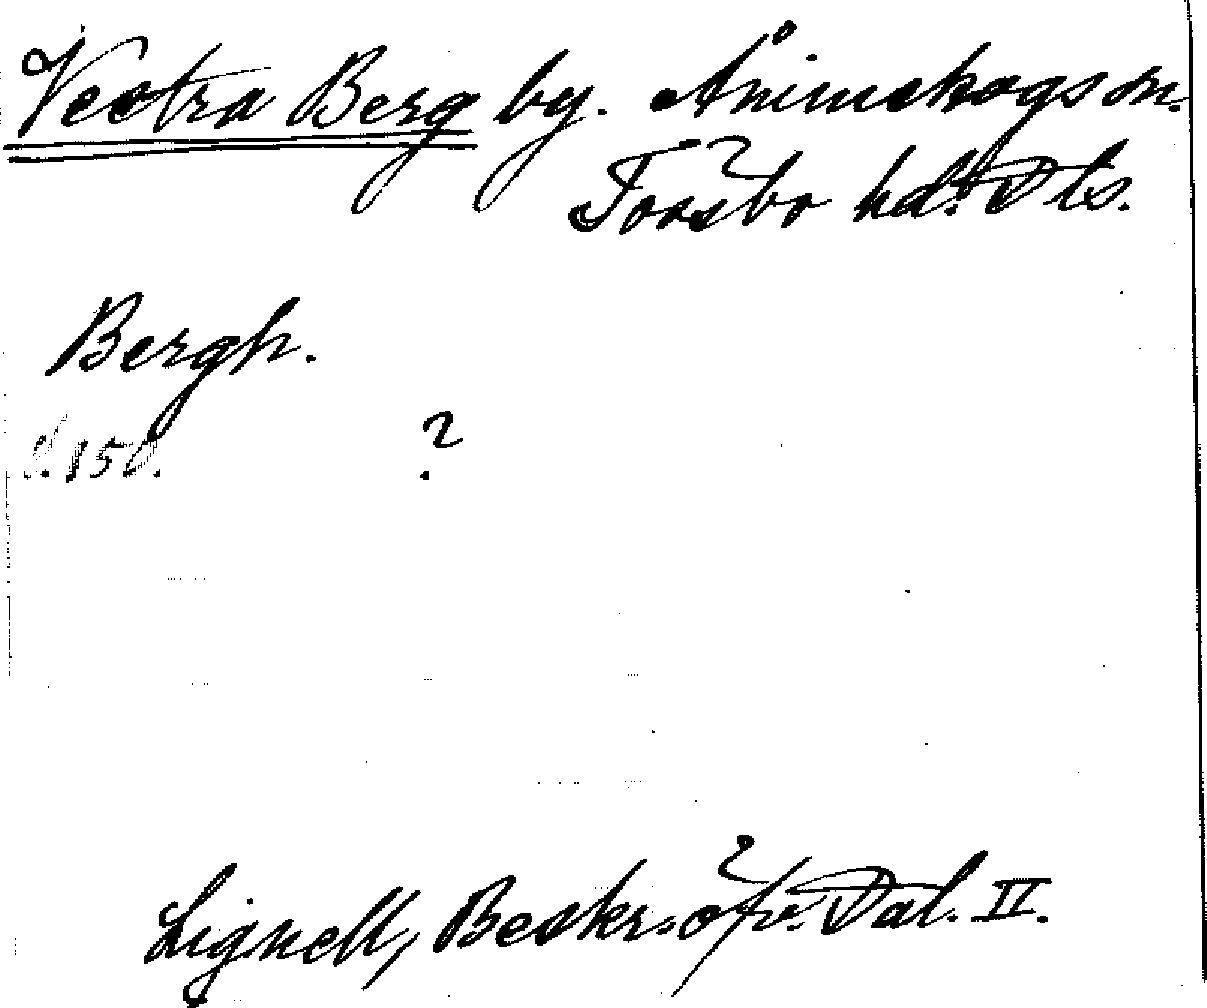 Vestra Berg by. Ånimskogs sn.
Tössbo hd. Dls.
Bergh.
s. 150. ?
Lignell, Beskr. öfv. Dal. II.